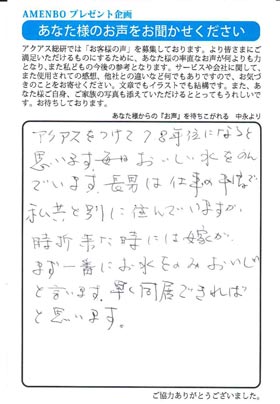 AMENBO プレゼント企画
あなた様のお声をお聞かせください
アクアス総研では「お客様の声」を募集しております。より皆さまにご
満足いただけるものにするために、あなた様の率直なお声が何よりも力
となり、また私どもの今後の参考となります。サービスや会社に関して、
また使用されての感想、他社との違いなど何でもありですので、お気づ
きのことをお寄せください。文章でもイラストでも結構です。また、あ
なた様ご自身、ご家族の写真も添えていただけるととってもうれしいで
す。お待ちしております。
あなた様からの『お声』を待ちこがれる 中永より
アクアスをつけて7 8年位になると
思います 毎日おいしい水をのん
でいます。長男は仕事の
私共と別に住んでいますが
時折来た時には嫁が
まず一番にお水をのみおいしい
と言います。早く同居できれば
と思います。
ご協力ありがとうございました。